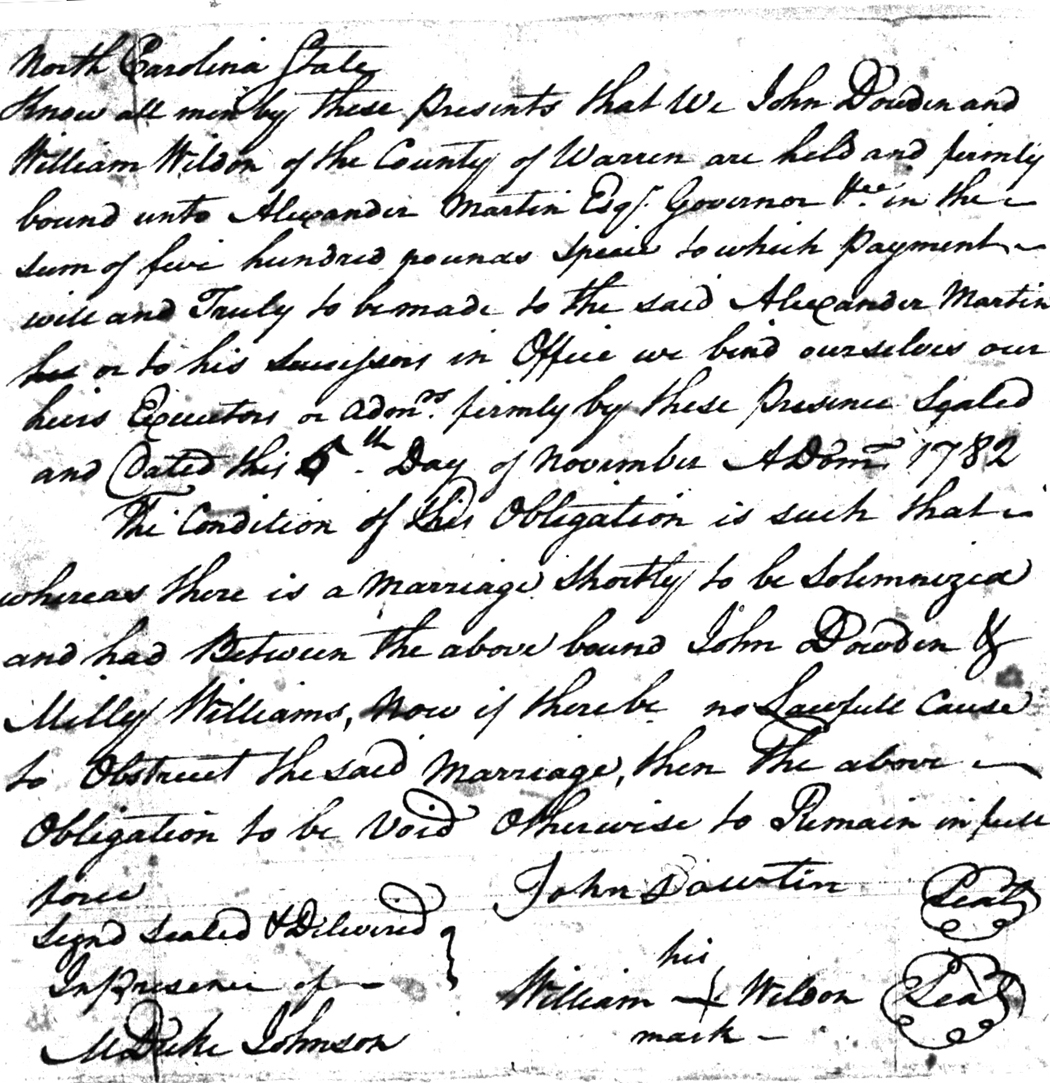 North Carolina State
Know all men by these Presents that We John Dowden and
William Wildon of the County of Warren are held and firmly
bound unto Alexander Martin Esqr. Governor &c. in the
sum of five hundred pounds Specie to which Payment
will and Truly to be made to the said Alexander Martin
or to his Successors in Office we bind ourselves our
heirs Executors or Admrs. firmly by these Presence Sealed
and Dated this 5th Day of November A Dom 1782
The Condition of this Obligation is such that
whereas there is a Marriage Shortly to be Solemnized
and had Between the above bound John Dowden &
Milly Williams, Now if there be no Lawfull Cause
to Obstruct the said Marriage, then the above
Obligation to be Void Otherwise to Remain in full
force
Signd Sealed & Delivered
In Presence of
MDuke Johnson
John Dawtin Seal
his
William + Wildon Seal
mark